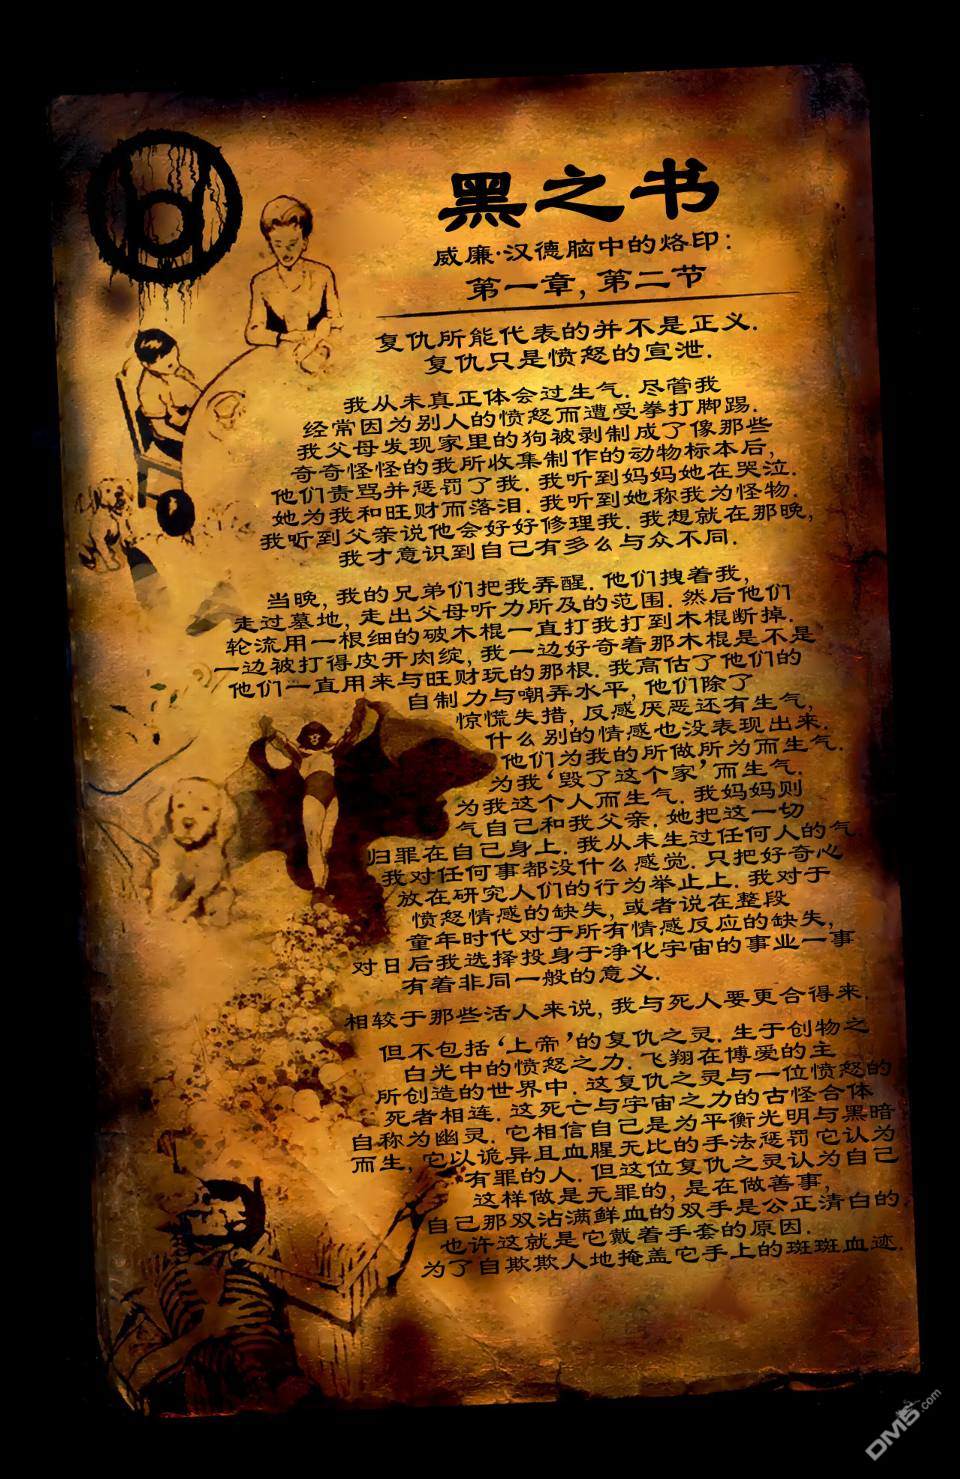 黑之书
威廉·汉德脑中的烙印：
第一章，第二节
复仇所能代表的并不是正义.
复仇只是愤怒的宣泄.
我从未真正体会过生气. 尽管我
经常因为别人的愤怒而遭受拳打脚踢.
我父母发现家里的狗被剥制成了像那些
奇奇怪怪的我所收集制作的动物标本后,
他们责骂并惩罚了我. 我听到妈妈她在哭泣.
她为我和旺财而落泪. 我听到她称我为怪物.
我听到父亲说他会好好修理我. 我想就在那晚,
我才意识到自己有多么与众不同.
当晚, 我的兄弟们把我弄醒. 他们拽着我,
走过墓地, 走出父母听力所及的范围. 然后他们
轮流用一根细的破木棍一直打我打到木棍断掉.
一边被打得皮开肉绽, 我一边好奇着那木棍是不是
他们一直用来与旺财玩的那根. 我高估了他们的
自制力与嘲弄水平, 他们除了
惊慌失措, 反感厌恶还有生气,
什么别的情感也没表现出来.
他们为我的所做所为而生气.
为我‘毁了这个家’而生气.
为我这个人而生气. 我妈妈则
气自己和我父亲. 她把这一切
归罪在自己身上. 我从未生过任何人的气.
我对任何事都没什么感觉. 只把好奇心
放在研究人们的行为举止上. 我对于
愤怒情感的缺失, 或者说在整段
童年时代对于所有情感反应的缺失,
对日后我选择投身于净化宇宙的事业一事
有着非同一般的意义.
相较于那些活人来说, 我与死人要更合得来.
但不包括‘上帝’的复仇之灵. 生于创物之
白光中的愤怒之力. 飞翔在博爱的主
所创造的世界中. 这复仇之灵与一位愤怒的
死者相连. 这死亡与宇宙之力的古怪合体
自称为幽灵. 它相信自己是为平衡光明与黑暗
而生, 它以诡异且血腥无比的手法惩罚它认为
有罪的人. 但这位复仇之灵认为自己
这样做是无罪的, 是在做善事,
自己那双沾满鲜血的双手是公正清白的.
也许这就是它戴着手套的原因.
为了自欺欺人地掩盖它手上的斑斑血迹.
DM5.com